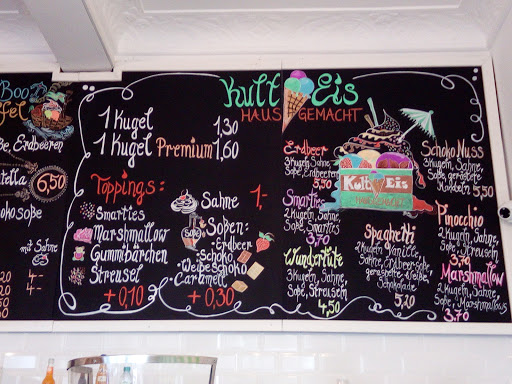 Boo
ffel
ße, Erdbeeren
tella
6,50
okosoße
mit Sahne
4,-
4,-
Kult Eis
HAUSGEMACHT
1 Kugel 1,30
1 Kugel Premium 1,60
Toppings:
Smarties
Marshmallow
Gummibärchen
Streusel
+0,10
Sahne 1,-
Soßen:
Erdbeer
Schoko
Weiße Schoko
Caramel
+0,30
Erdbeer
3 Kugeln, Sahne,
Soße, Erdbeeren
5,50
Smarties
2 Kugeln, Sahne,
Soße, Smarties
3,70
Wundertüte
3 Kugeln, Sahne,
Soße, Streuseln
4,50
Kult Eis
Spaghetti
2 Kugeln Vanille,
Sahne, Erdbeersoße,
geraspelte weiße
Schokolade
5,20
Schoko Nuss
3 Kugeln, Sahne,
Soße, geröstete
Mandeln 5,50
Pinocchio
2 Kugeln, Sahne,
Soße, Streuseln
3,70
Marshmallow
2 Kugeln, Sahne,
Soße, Marshmallows
3,70